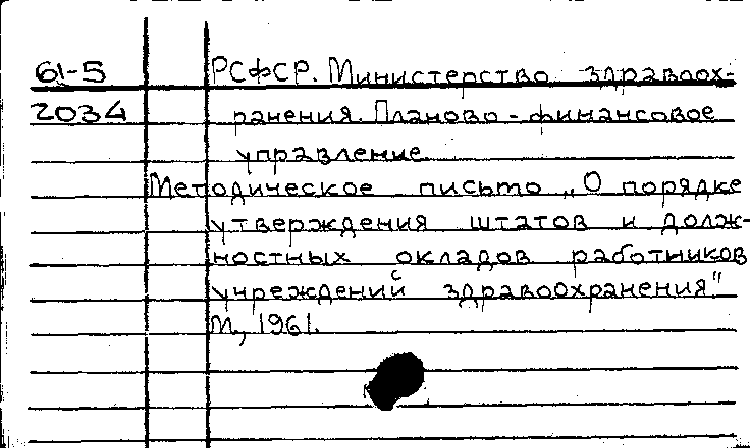 61-5 РСФСР. Министерство здравоох-
2034 ранения. Планово-финансовое
управление.
Методическое письмо „О порядке
утверждения штатов и долж-
ностных окладов работников
учреждений здравоохранения".
М., 1961.